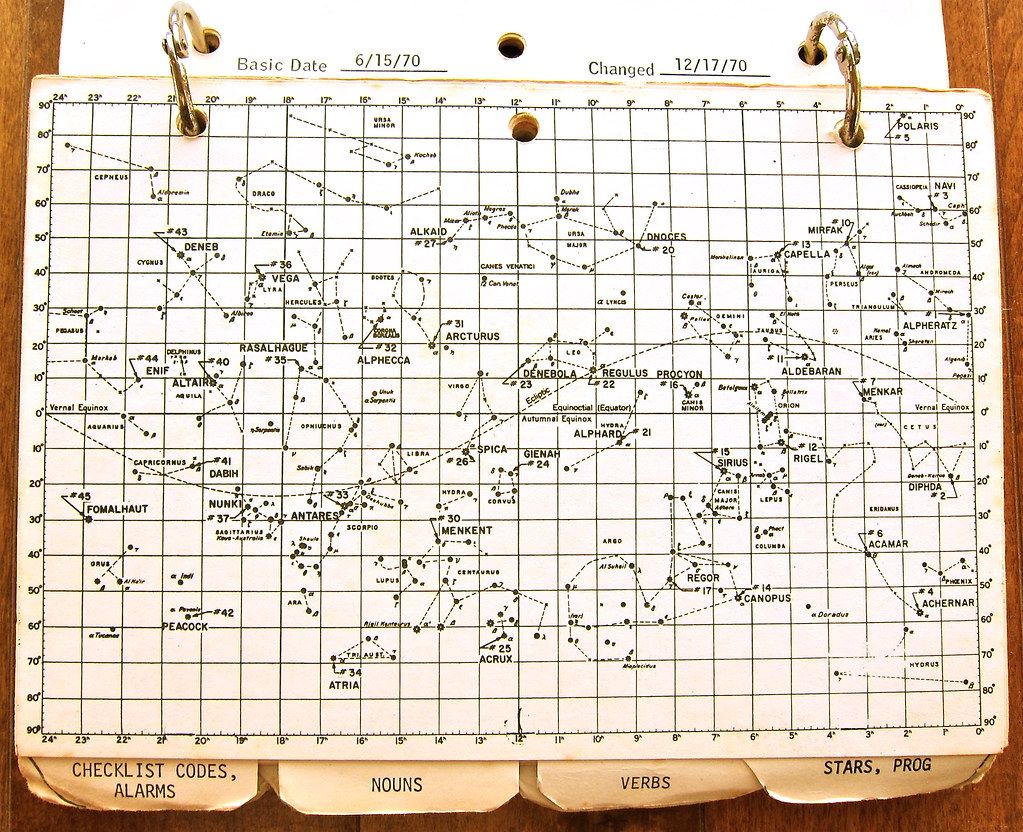 Basic Date 6/15/70
Changed 12/17/70
24ʰ 23ʰ 22ʰ 21ʰ 20ʰ 19ʰ 18ʰ 17ʰ 16ʰ 15ʰ 14ʰ 13ʰ 12ʰ 11ʰ 10ʰ 9ʰ 8ʰ 7ʰ 6ʰ 5ʰ 4ʰ 2ʰ 1ʰ 0ʰ
90° 90°
URSA
MINOR
POLARIS
# 5
80° 80°
Kochab
70° 70°
CEPHEUS
Alderamin
DRACO
Etamin
Dubhe
Merak
Megrez
Alioth
Mizar
Phecda
CASSIOPEIA
NAVI
# 3
Caph
Ruchbah
Schedir
60° 60°
ALKAID
# 27
URSA
MAJOR
DNOCES
# 20
# 10
MIRFAK
50° 50°
# 43
DENEB
CYGNUS
# 13
CAPELLA
Menkalinan
AURIGA
PERSEUS
Algol
Almach
ANDROMEDA
Mirach
40° 40°
# 36
VEGA
LYRA
HERCULES
BOOTES
CANES VENATICI
12 Can. Venat
α LYNCIS
Castor
Pollux
GEMINI
TRIANGULUM
30° 30°
Scheat
PEGASUS
Albireo
CORONA
BOREALIS
# 32
ALPHECCA
# 31
ARCTURUS
El Nath
TAURUS
ARIES
Hamal
Sheratan
ALPHERATZ
# 1
20° 20°
Markab
# 44
ENIF
DELPHINUS
# 40
ALTAIR
AQUILA
RASALHAGUE
# 35
LEO
DENEBOLA
# 23
REGULUS
# 22
PROCYON
# 16
CANIS
MINOR
# 11
ALDEBARAN
Algenib
Pegasi
10° 10°
Unuk
α Serpentis
VIRGO
Ecliptic
Betelgeux
Bellatrix
ORION
# 7
MENKAR
Vernal Equinox
Equinoctial (Equator)
Autumnal Equinox
Vernal Equinox
0° 0°
AQUARIUS
η Serpentis
OPHIUCHUS
HYDRA
ALPHARD
# 21
CETUS
10° 10°
CAPRICORNUS
# 41
DABIH
Sabik
LIBRA
SPICA
# 26
GIENAH
# 24
CORVUS
# 15
SIRIUS
# 12
RIGEL
DIPHDA
# 2
20° 20°
# 45
FOMALHAUT
NUNKI
# 37
SAGITTARIUS
Kaus-Australis
# 33
ANTARES
SCORPIO
Dschubba
HYDRA
CANIS
MAJOR
Adhara
LEPUS
ERIDANUS
30° 30°
# 30
MENKENT
Shaula
ARGO
Phact
COLUMBA
# 6
ACAMAR
40° 40°
GRUS
Al Na'ir
α Indi
LUPUS
CENTAURUS
Al Suhail
REGOR
# 17
# 14
CANOPUS
PHOENIX
# 4
ACHERNAR
50° 50°
ARA
α Pavonis
# 42
PEACOCK
α Tucanae
Rigil Kentaurus
α Doradus
60° 60°
# 25
ACRUX
TRI. AUST.
# 34
ATRIA
Miaplacidus
HYDRUS
70° 70°
80° 80°
90° 90°
23ʰ 22ʰ 21ʰ 20ʰ 19ʰ 18ʰ 17ʰ 16ʰ 15ʰ 14ʰ 13ʰ 12ʰ 11ʰ 10ʰ 9ʰ 8ʰ 7ʰ 6ʰ 5ʰ 4ʰ 3ʰ 2ʰ 1ʰ 0ʰ
CHECKLIST CODES,
ALARMS
NOUNS
VERBS
STARS, PROG